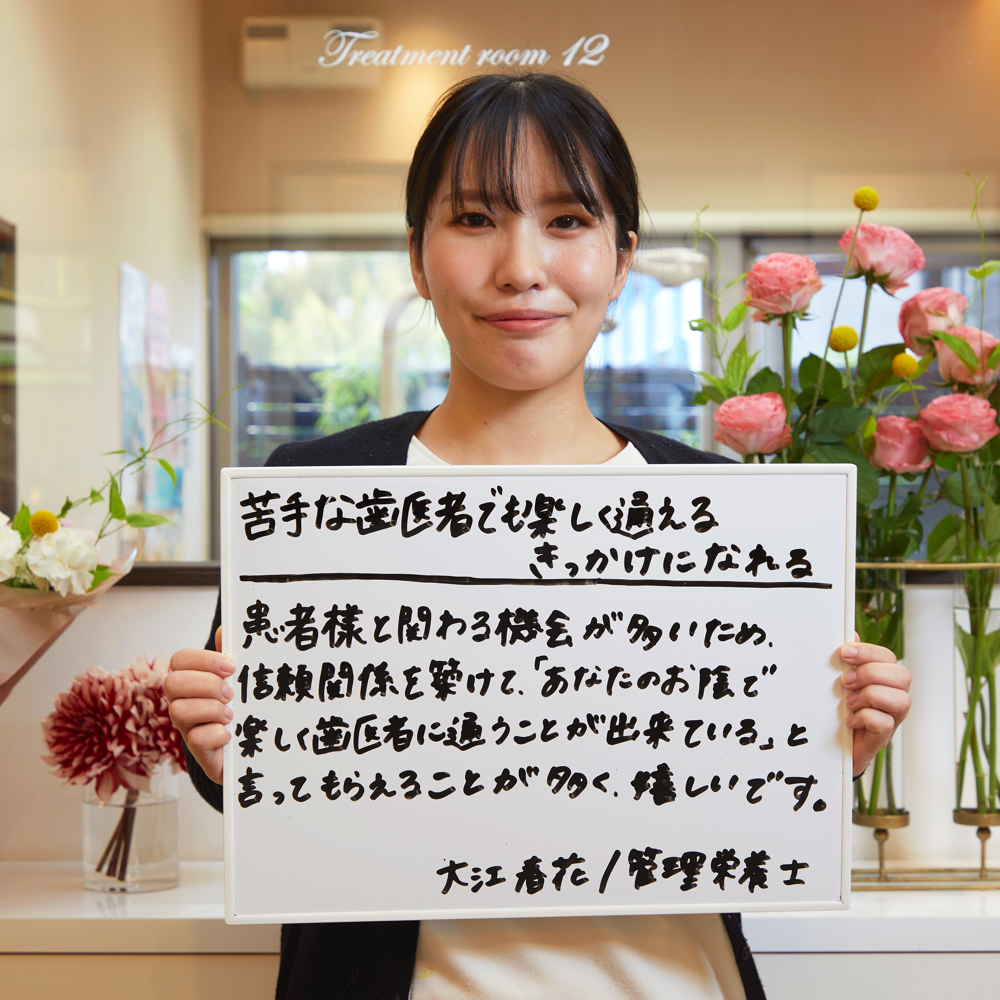 Treatment room 12
苦手な歯医者でも楽しく通える
きっかけになれる
患者様と関わる機会が多いため、
信頼関係を築けて、「あなたのお陰で
楽しく歯医者に通うことが出来ている」と
言ってもらえることが多く、嬉しいです。
大江春花/管理栄養士